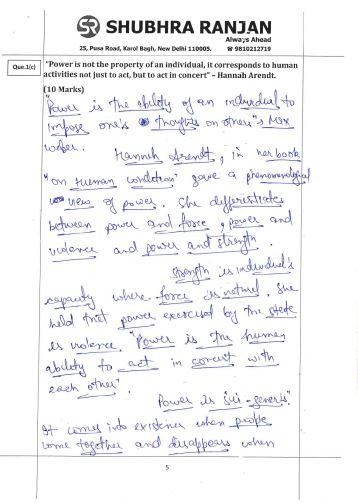 SR SHUBHRA RANJAN
Always Ahead
25, Pusa Road, Karol Bagh, New Delhi 110005. ☎ 9810212719
Que.1(c) "Power is not the property of an individual, it corresponds to human
activities not just to act, but to act in concert" – Hannah Arendt.
(10 Marks)
"Power is the ability of an individual to
impose one's thoughts on others" - Max
Weber.
Hannah Arendt, in her book
"on Human Condition" gave a phenomenological
view of power. She differentiates
between power and force, power and
violence and power and strength.
Strength is individual's
capacity where force is natural. She
held that power exercised by the state
is violence. "Power is the human
ability to act in concert with
each other"
Power is Sui-generis".
It comes into existence when people
come together and disappears when
5